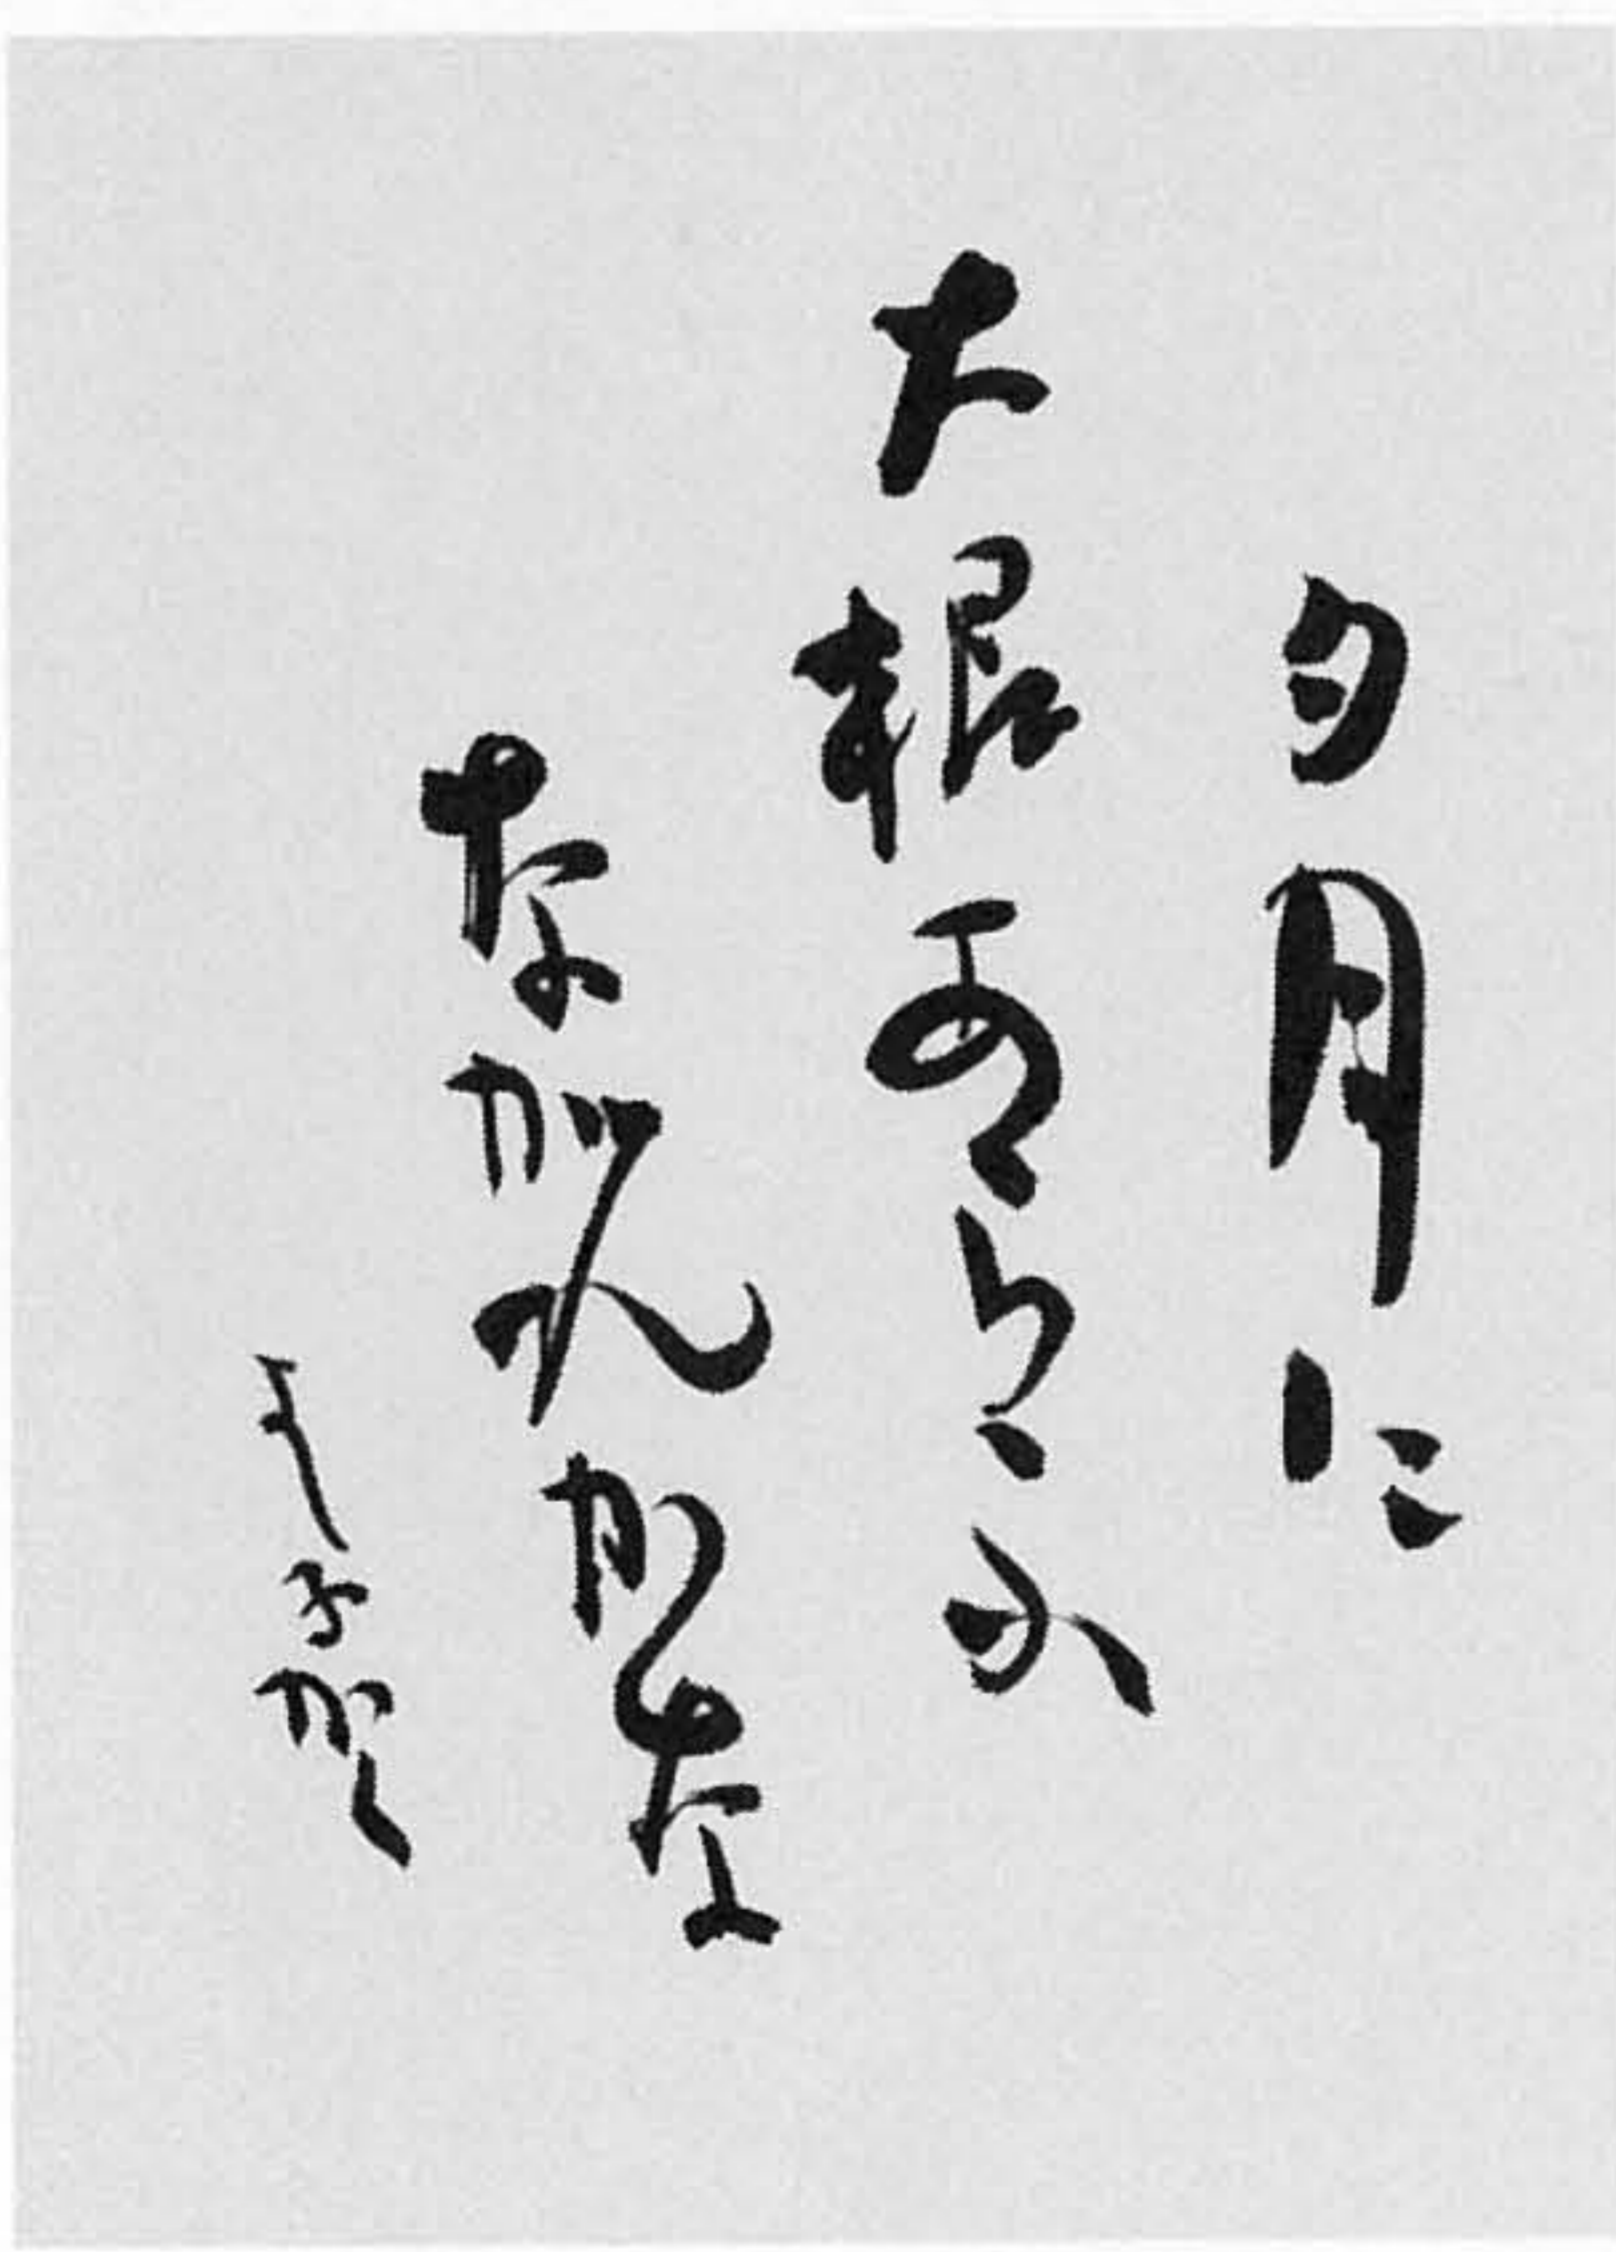 夕月に
大根あらふ
ながれかな
よし子かく